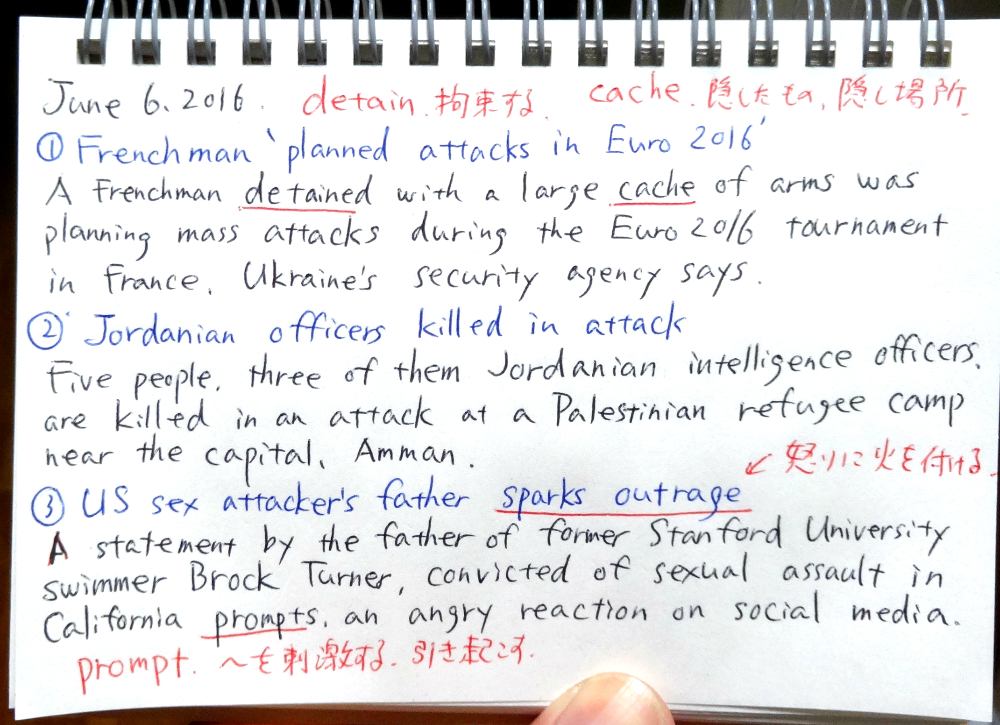 June 6, 2016. detain. 拘束する. cache. 隠したもの, 隠し場所.
① Frenchman 'planned attacks in Euro 2016'
A Frenchman detained with a large cache of arms was
planning mass attacks during the Euro 2016 tournament
in France, Ukraine's security agency says.
② Jordanian officers killed in attack
Five people, three of them Jordanian intelligence officers,
are killed in an attack at a Palestinian refugee camp
near the capital, Amman.
↙ 怒りに火を付ける.
③ US sex attacker's father sparks outrage
A statement by the father of former Stanford University
swimmer Brock Turner, convicted of sexual assault in
California prompts, an angry reaction on social media.
prompt. ～を刺激する. 引き起こす.